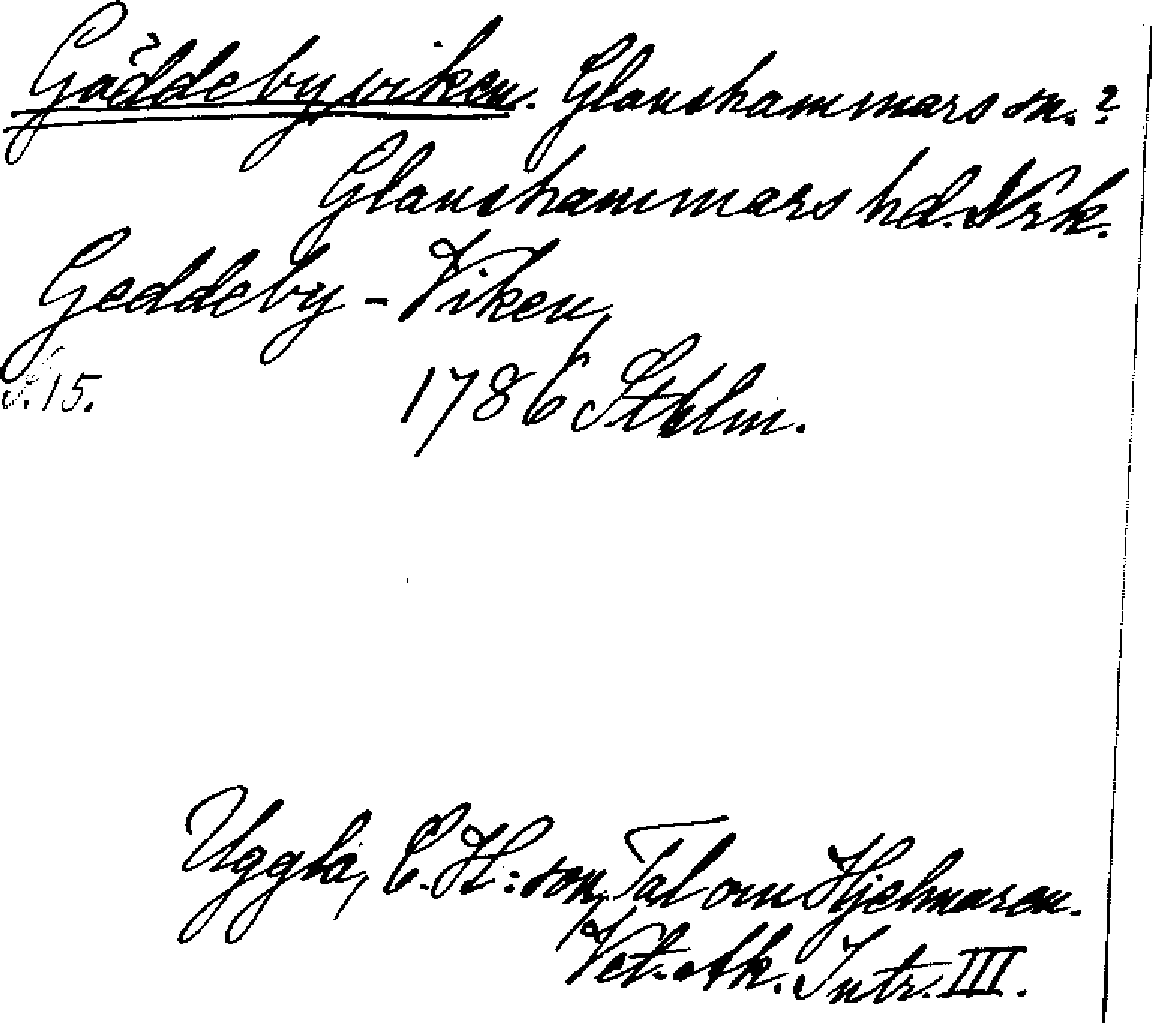 Gäddebyviken. Glanshammars sn.?
Glanshammars hd. Nrk.
Geddeby-Viken,
S. 15. 1786 Sthlm.
Uggla, C. H:son, Tal om Hjelmaren.
Vet. Ak. Intr. III.